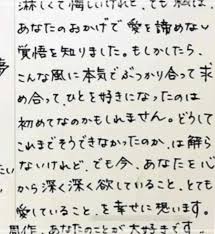 淋しくて悔しいけれど、でも私は、
あなたのおかげで愛を諦めない
覚悟を知りました。もしかしたら、
こんな風に本気でぶつかり合って求
め合って、ひとを好きになったのは
初めてなのかもしれません。どうして
これまでそうできなかったのか、は解ら
ないけれど、でも今、あなたを心
から深く深く欲していること、とても
愛していること、を幸せに想います。
周作、あなたのことが大好きです。